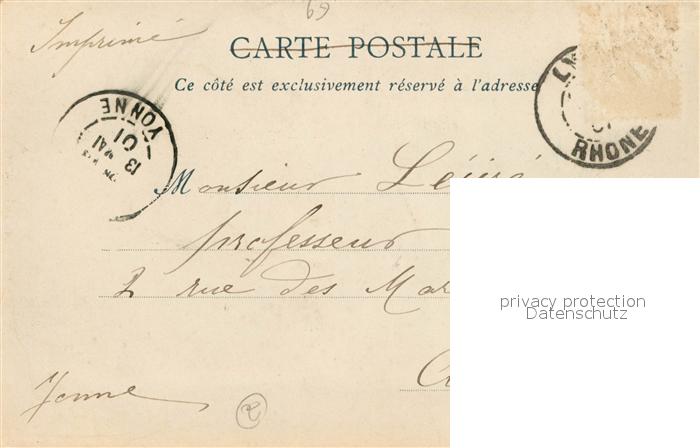 69
Imprimé
CARTE POSTALE
Ce côté est exclusivement réservé à l'adresse
YONNE
13 MAI 01
RHONE
Monsieur
professeur
2 rue des Mar
privacy protection
Datenschutz
Yonne
2